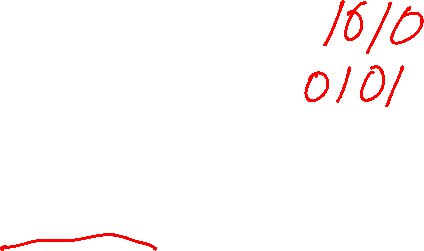 1010
0101